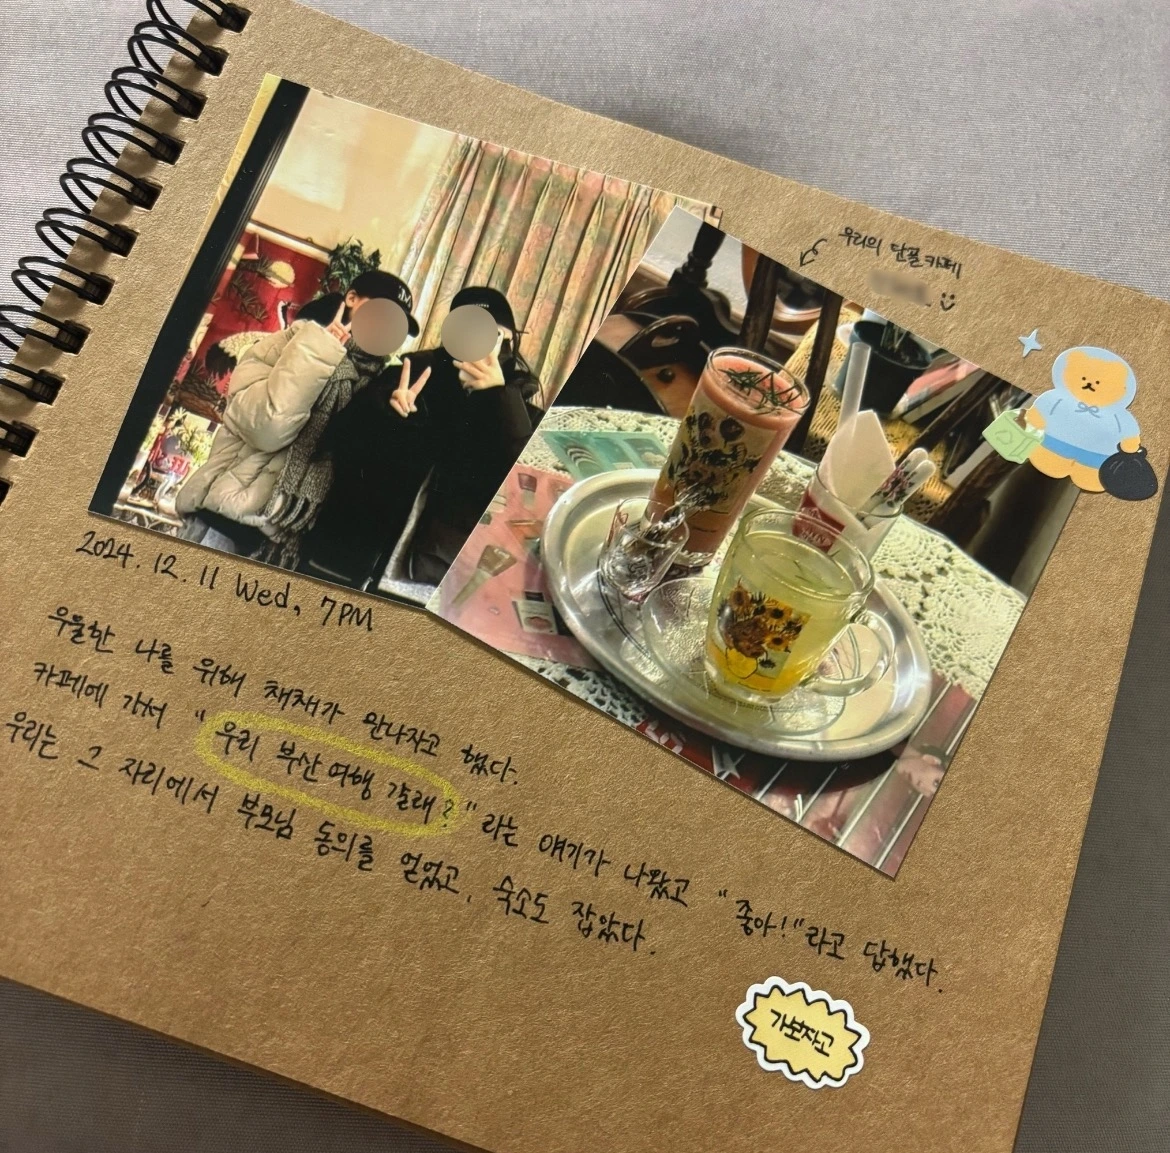 우리의 단골카페
2024. 12. 11 Wed, 7PM
우울한 나를 위해 채채가 만나자고 했다.
카페에 가서 "우리 부산여행 갈래?"라는 얘기가 나왔고 "좋아!"라고 답했다.
우리는 그 자리에서 부모님 동의를 얻었고, 숙소도 잡았다.
가보자고